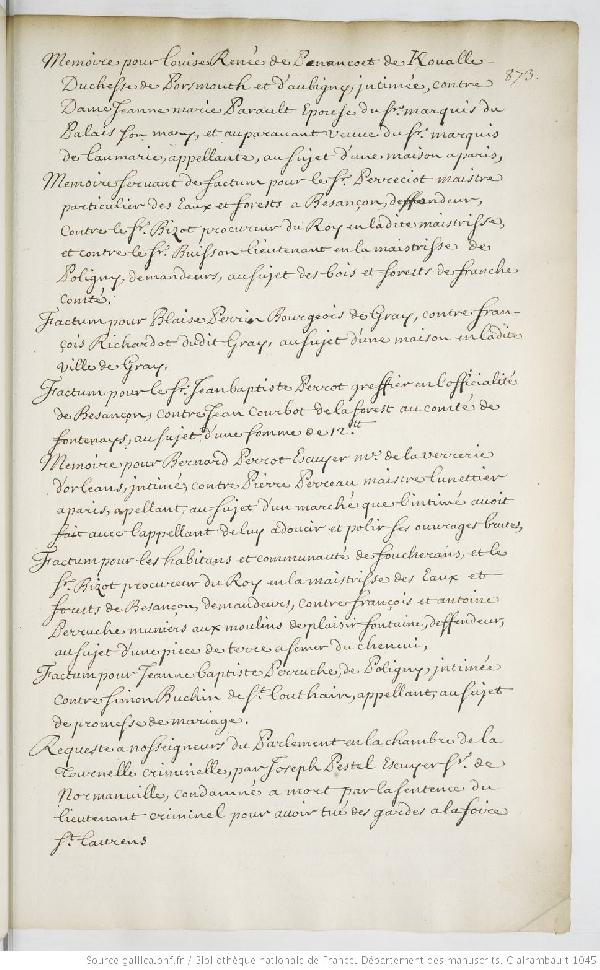 873.
Memoire pour Louise Renée de Penancoet de Koualle
Duchesse de Porsmouth et d'aubigny, intimée, contre
Dame Jeanne marie Parault Epouse du Sr. marquis du
Palais son mary, et auparavant veuve du Sr. marquis
de Laumarie, appellante, au sujet d'une maison a paris,
Memoire servant de factum pour le Sr. Perreciot maistre
particulier des Eaux et forests a Besançon, deffendeur,
contre le Sr. Bizot procureur du Roy en ladite maistrisse,
et contre le Sr. Buisson lieutenant en la maistrisse de
Poligny, demandeurs, au sujet des bois et forests de franche
comté,
Factum pour Blaise Perrin Bourgeois de Gray, contre fran-
çois Richardot dudit Gray, au sujet d'une maison en ladite
ville de Gray,
Factum pour le Sr. Jean baptiste Perrot greffier en l'officialité
de Besançon, contre Jean Courbot de la forest au comté de
fontenays, au sujet d'une somme de 12 lt
Memoire pour Bernard Perrot Ecuyer mre. de la verrerie
d'orleans, intimé, contre Pierre Perreau maistre lunettier
a paris, apellant, au sujet d'un marché que l'intimé avoit
fait avec l'appellant de luy adoucir et polir ses ouvrages brutes,
Factum pour les habitans et communauté de foucherans, et le
Sr. Bizot procureur du Roy en la maistrisse des Eaux et
forests de Besançon, demandeurs, contre françois et antoine
Perruche muniers aux moulins de plaisir fontaine, deffendeur,
au sujet d'une piece de terre a semer du chenevi,
Factum pour Jeanne baptiste Perruche, de Poligny, intimée
contre Simon Buchin de St. Louthain, appellant, au sujet
de promesse de mariage.
Requeste a nosseigneurs du Parlement en la chambre de la
Tournelle criminelle, par Joseph Pestel Escuyer Sr. de
Normanville, condamné a mort par la sentence du
lieutenant criminel pour avoir tué des gardes a la foire
St. Laurens
Source gallica.bnf.fr / Bibliothèque nationale de France. Département des manuscrits. Clairambault 1045